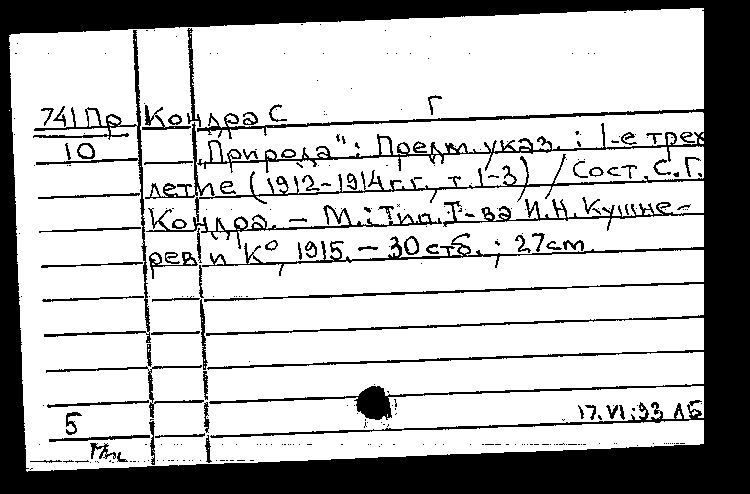 741 Пр Кондра, С Г
10 „Природа“: Предм. указ. : 1-е трех
летие (1912-1914 г.г., т. 1-3) / Сост. С.Г.
Кондра. – М.: Тип. Т-ва И.Н. Кушне-
рев и К°, 1915. – 30 стб. ; 27 cm.
5 17.VI.93 ЛБ